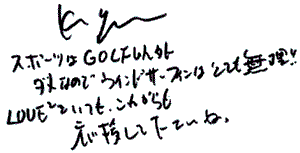 スポーツはGOLFしか
ダメなのでウインドサーフィンはとても無理!!
LOVEといっても、これからも
応援して下さいね。